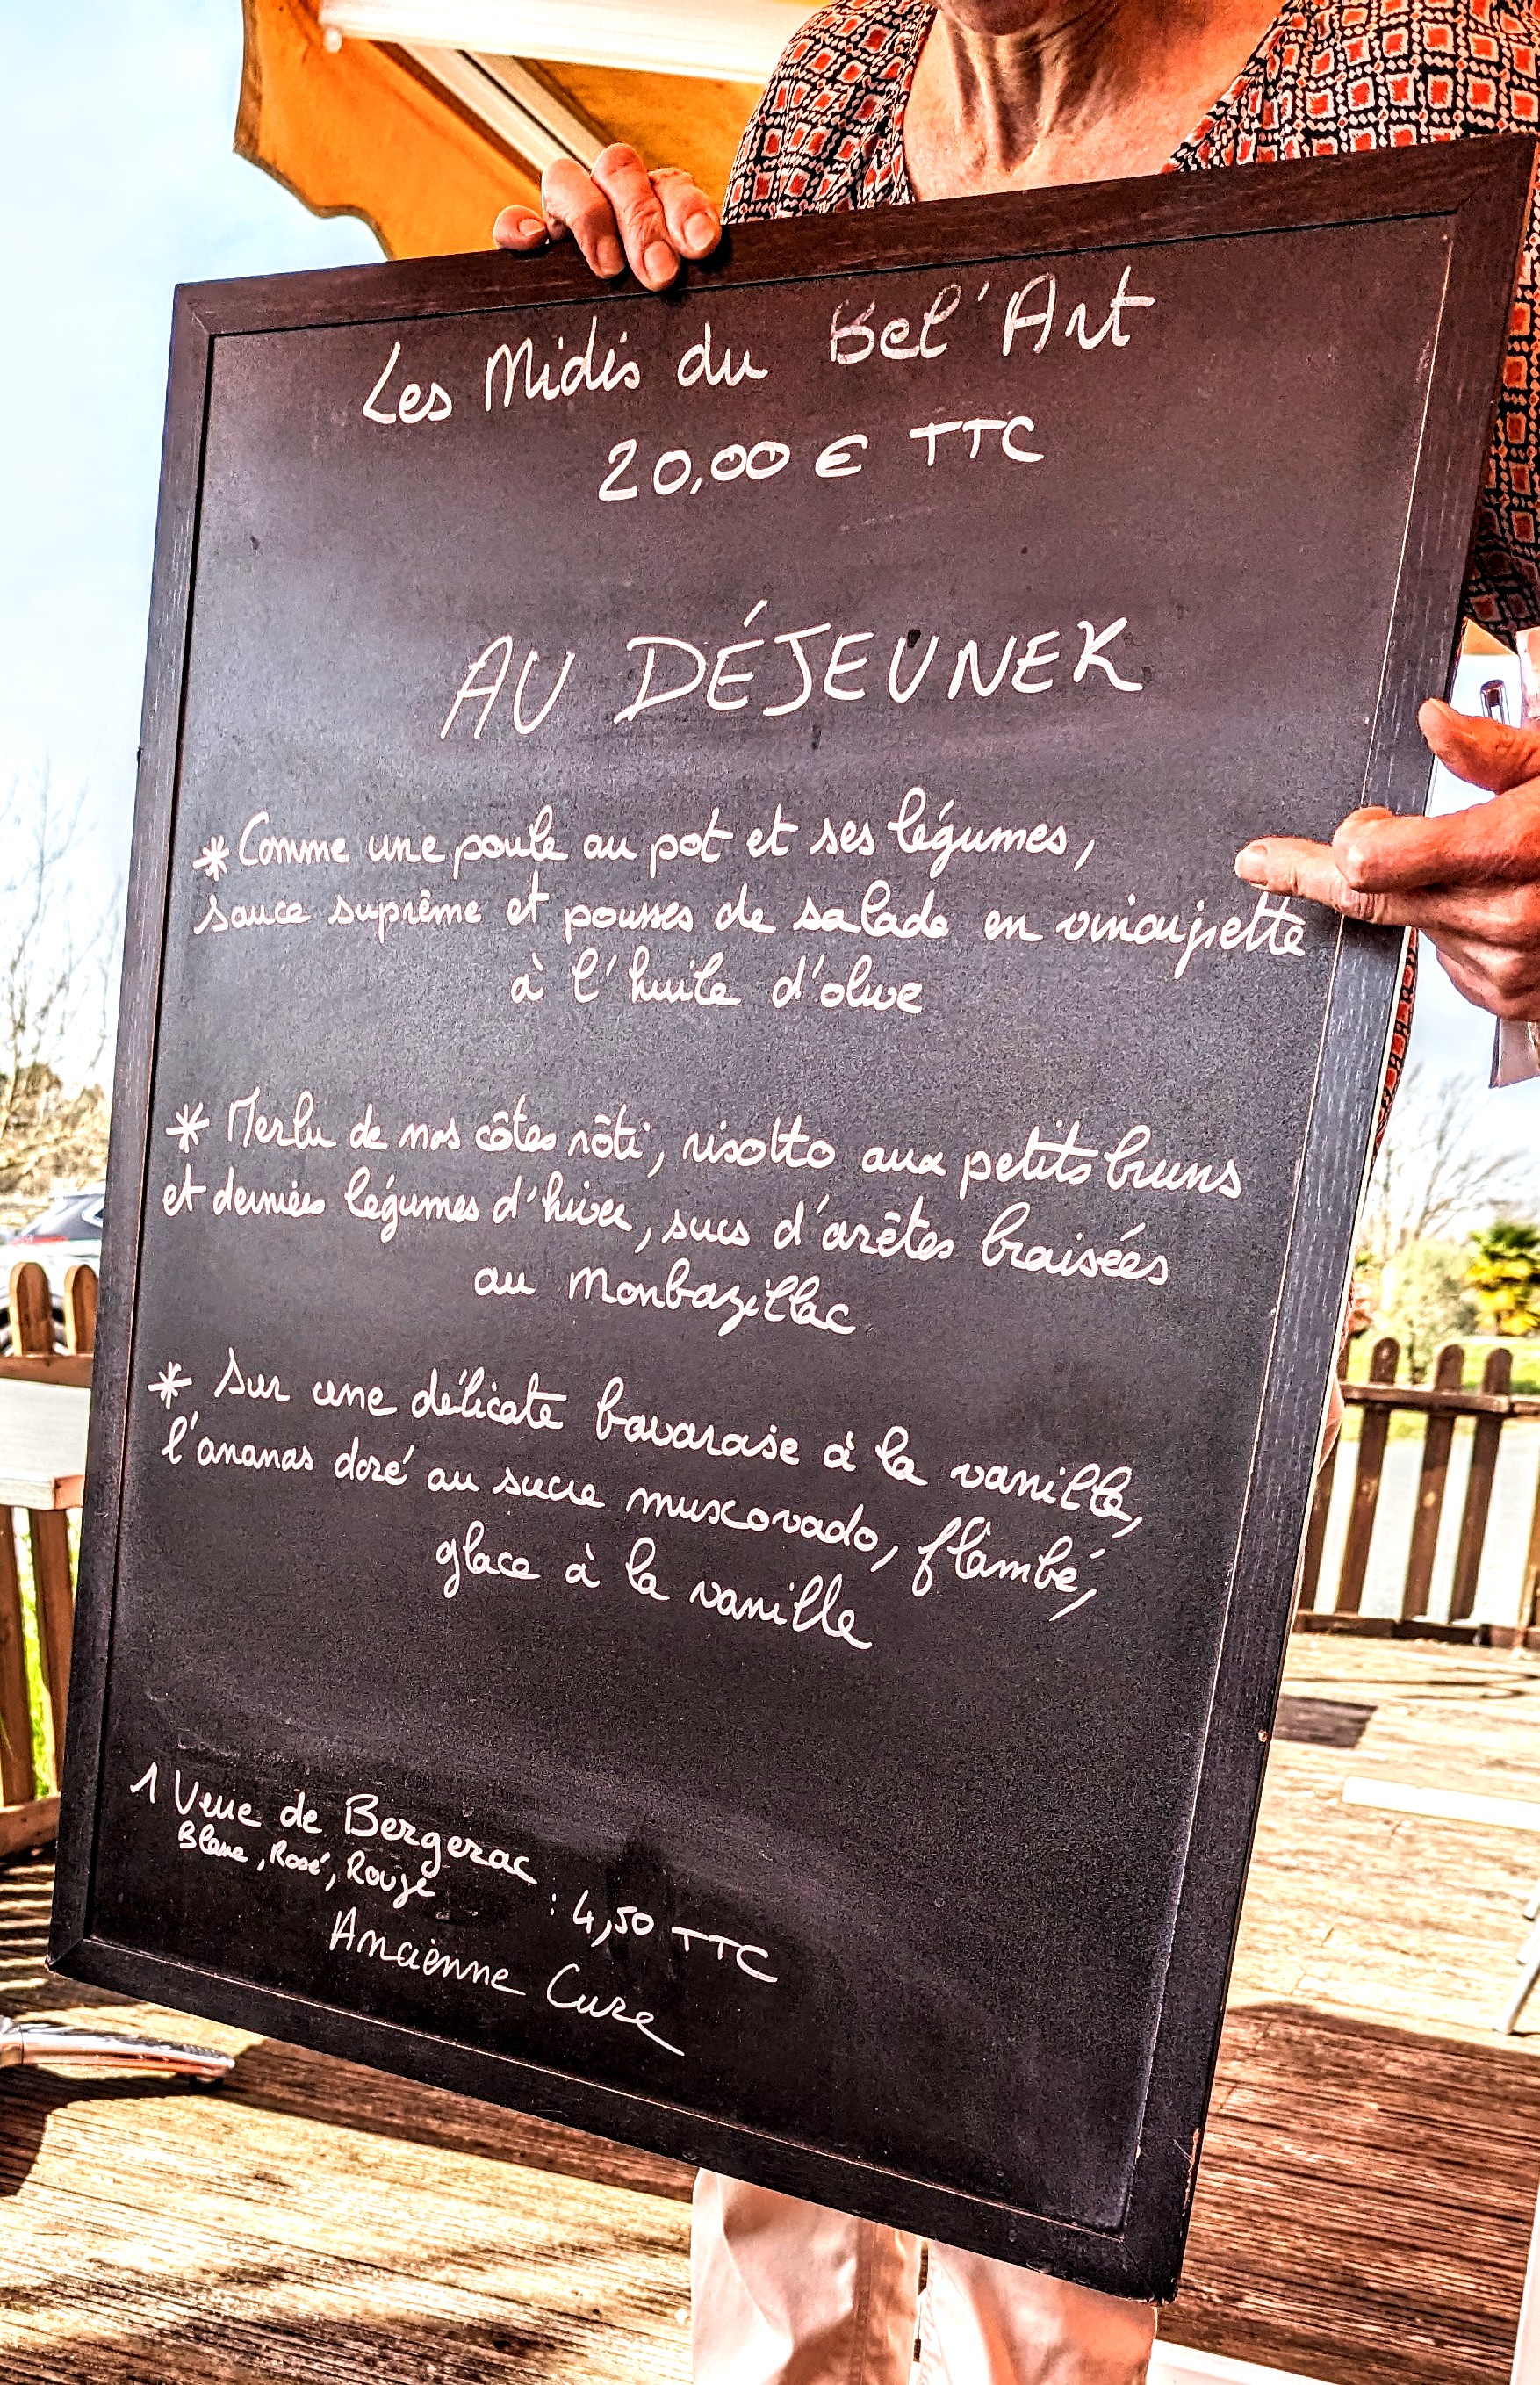 Les Midis du Bel'Art
20,00 € TTC
AU DÉJEUNER
* Comme une poule au pot et ses légumes,
sauce suprême et pousses de salade en vinaigrette
à l'huile d'olive
* Merlu de nos côtes rôti, risotto aux petits bruns
et derniers légumes d'hiver, sucs d'arêtes braisées
au Monbazillac
* Sur une délicate bavaroise à la vanille,
l'ananas doré au sucre muscovado, flambé,
glace à la vanille
1 Verre de Bergerac : 4,50 TTC
Blanc, Rosé, Rouge
Ancienne Cure